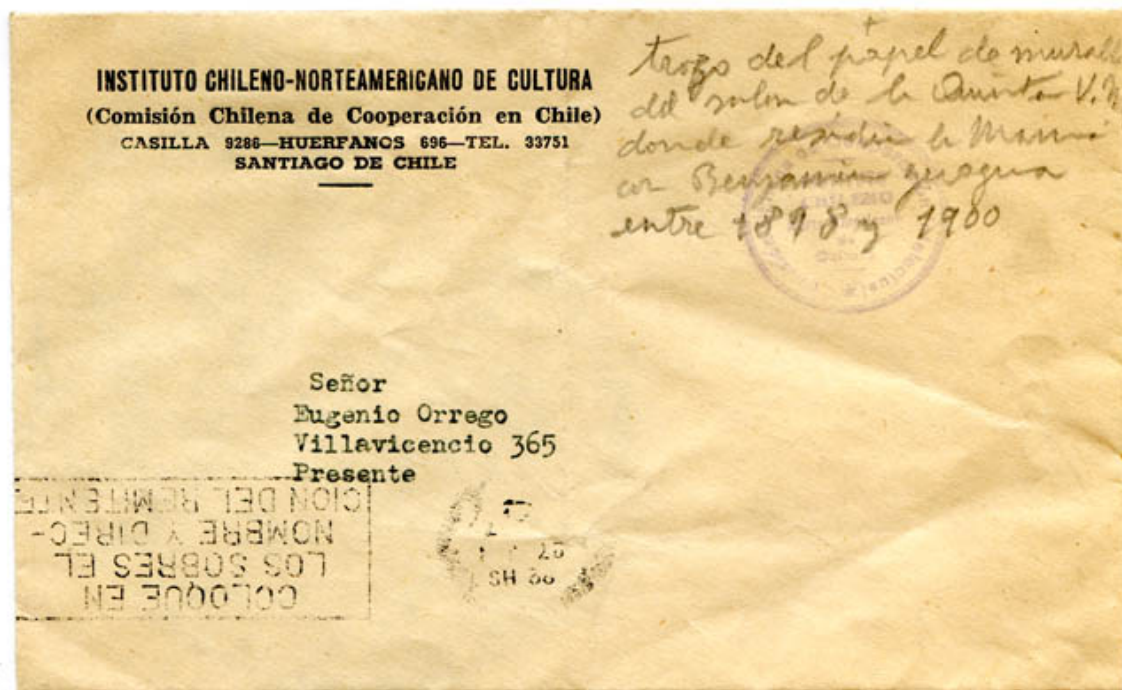 INSTITUTO CHILENO-NORTEAMERICANO DE CULTURA
(Comisión Chilena de Cooperación en Chile)
CASILLA 9286—HUERFANOS 696—TEL. 33751
SANTIAGO DE CHILE
trozo del papel de muralla
del salon de la Quinta V. M
donde residia la Mamá
con Benjamin
entre 1898 y 1900
CHILENO
Señor
Eugenio Orrego
Villavicencio 365
Presente
COLOQUE EN
LOS SOBRES EL
NOMBRE Y DIREC-
CION DEL REMITENTE